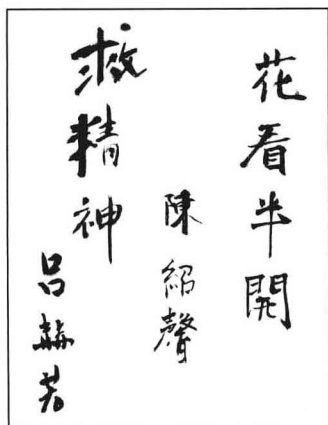 花看半開
陳紹馨
救精神
呂赫若